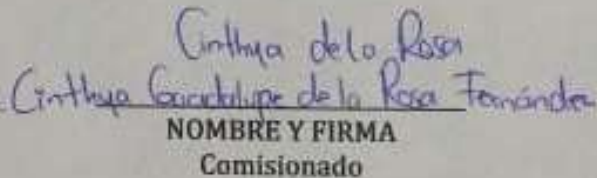 Cinthya de la Rosa
Cinthya Guadalupe de la Rosa Fernández
NOMBRE Y FIRMA
Comisionado